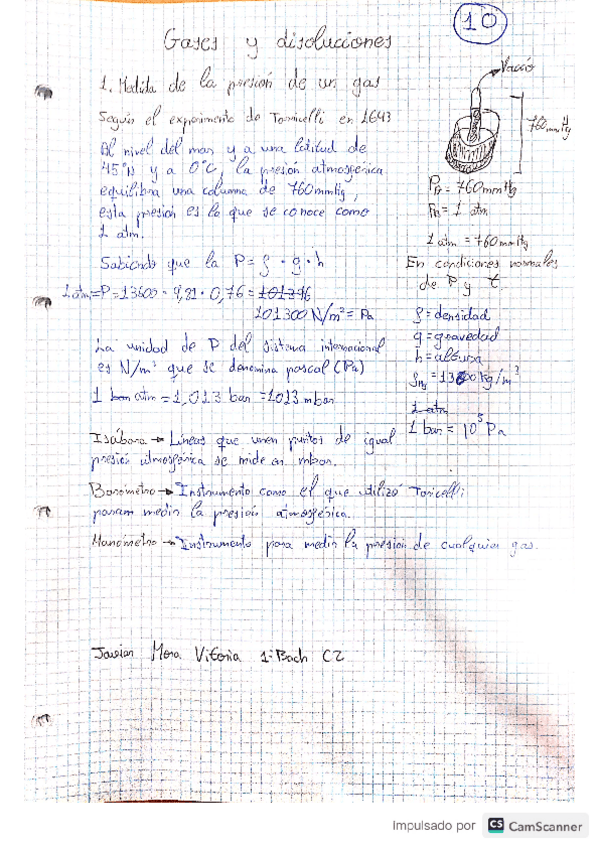 10
Gases y disoluciones
1. Medida de la persión de un gas
Según el experimento de Torricelli en 1643
Al nivel del mar y a una latitud de
45°N y a 0°C, la presión atmosférica
equilibra una columna de 760mmHg,
esta presión es la que se conoce como
1 atm.
Sabiendo que la P = ρ · g · h
1 atm = P = 13600 · 9,81 · 0,76 = 101396
101300 N/m² = Pa
La unidad de P del sistema internacional
es N/m² que se denomina pascal (Pa)
1 bar atm = 1,013 bar = 1013 mbar
Vacío
760 mmHg
= 760mmHg
= 1 atm
1 atm = 760 mmHg
En condiciones normales
de P y t.
ρ = densidad
g = gravedad
h = altura
ρHg = 13600 kg/m³
1 atm
1 bar = 10⁵ Pa
Isóbara → Líneas que unen puntos de igual
presión atmosférica se mide en mbar.
Barómetro → Instrumento como el que utilizó Toricelli
param medir la presión atmosférica.
Manómetro → Instrumento para medir la presión de cualquier gas.
Javier Mora Vitoria 1º Bach C2
Impulsado por CS CamScanner